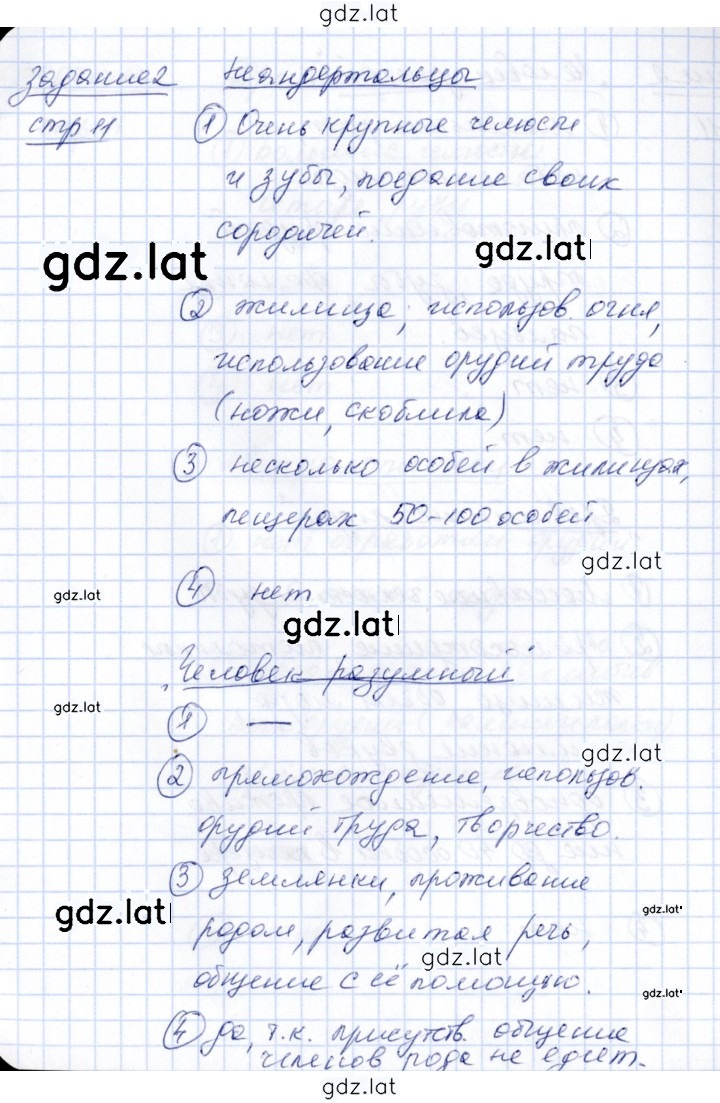 gdz.lat
задание2 Неандертальцы
стр 11 1 Очень крупные челюсти
и зубы, поедание своих
сородичей.
gdz.lat gdz.lat
2 жилища, использов. огня,
использование орудий труда
(ножи, скоблила)
3 несколько особей в жилищах,
пещерах 50-100 особей
gdz.lat
4 нет
gdz.lat
gdz.lat
"Человек разумный"
gdz.lat
1 —
gdz.lat
2 прямохождение, использов.
орудий труда, творчество.
3 землянки, проживание
gdz.lat gdz.lat
родом, развитая речь,
gdz.lat
общение с её помощью.
gdz.lat
4 да, т.к. присутств. общение
членов рода не едят.
gdz.lat